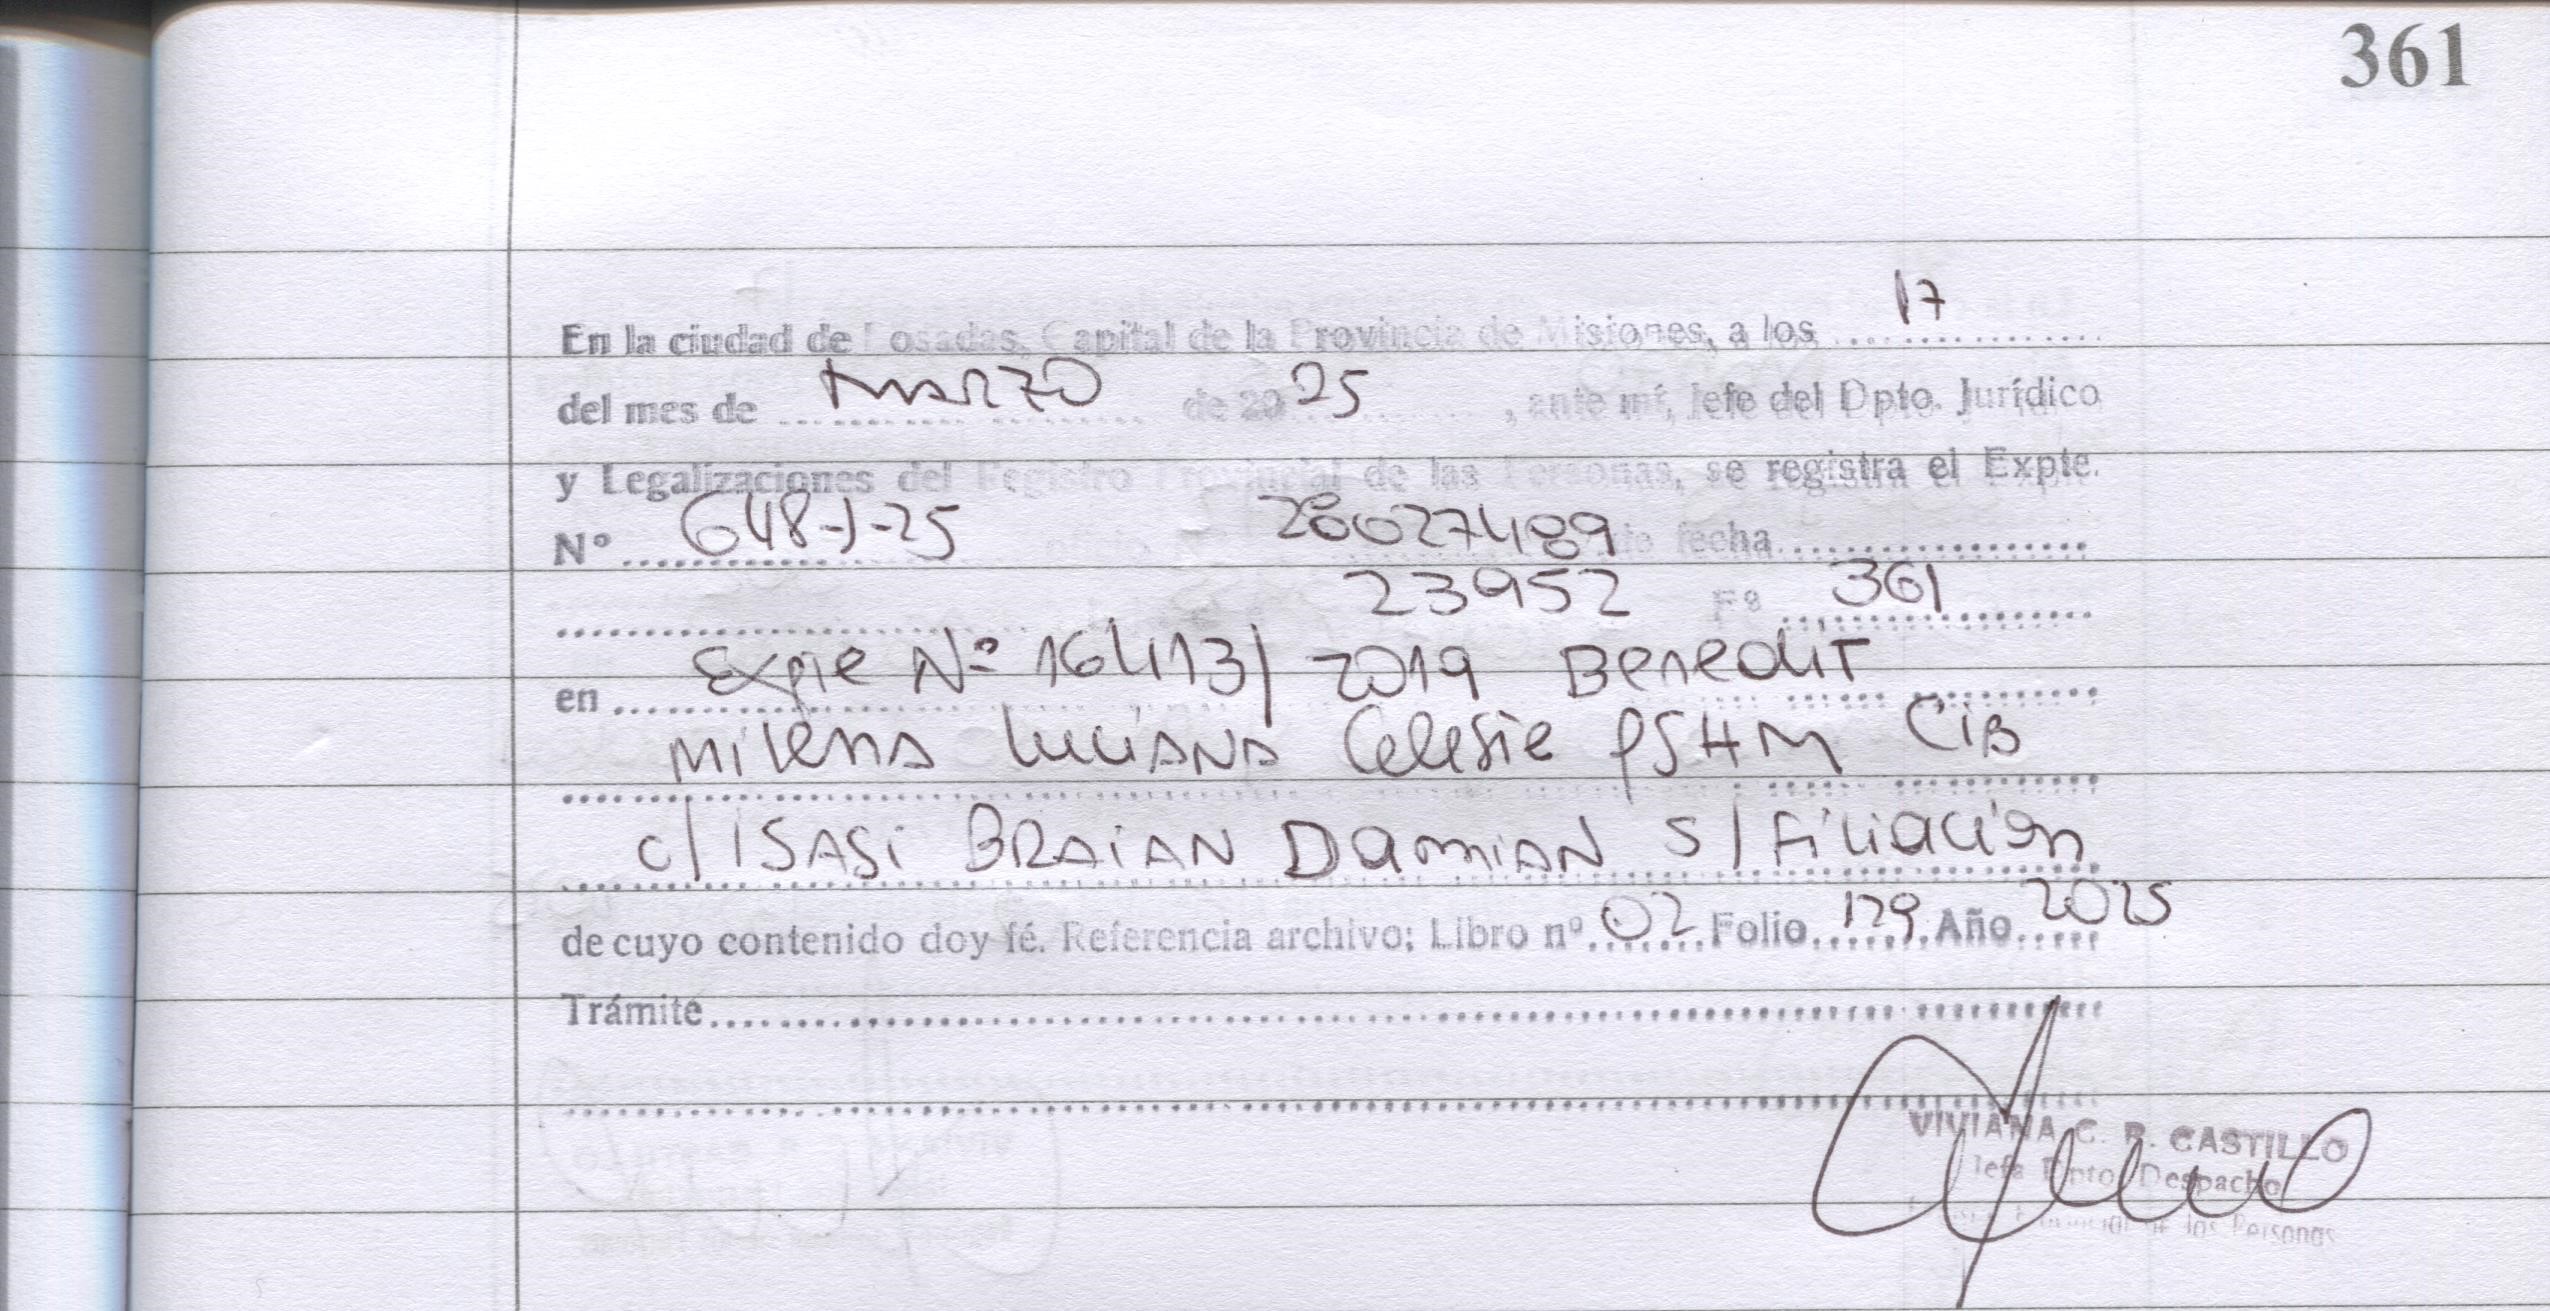 361
En la ciudad de Posadas, Capital de la Provincia de Misiones, a los 17
del mes de marzo de 20 25, ante mí, Jefe del Dpto. Jurídico
y Legalizaciones del Registro Provincial de las Personas, se registra el Expte.
Nº 648-J-25 28027489 de fecha
23952 Fº 361
en Expte Nº 16413/2019 Benedit
milena luciana Celeste PSHM CiB
c/ ISASi BRAiAN DamiAN s/ Filiación
de cuyo contenido doy fé. Referencia archivo; Libro nº 02 Folio 129 Año 2025
Trámite
VIVIANA C. R. CASTILLO
Jefa Dpto. Despacho
de las Personas